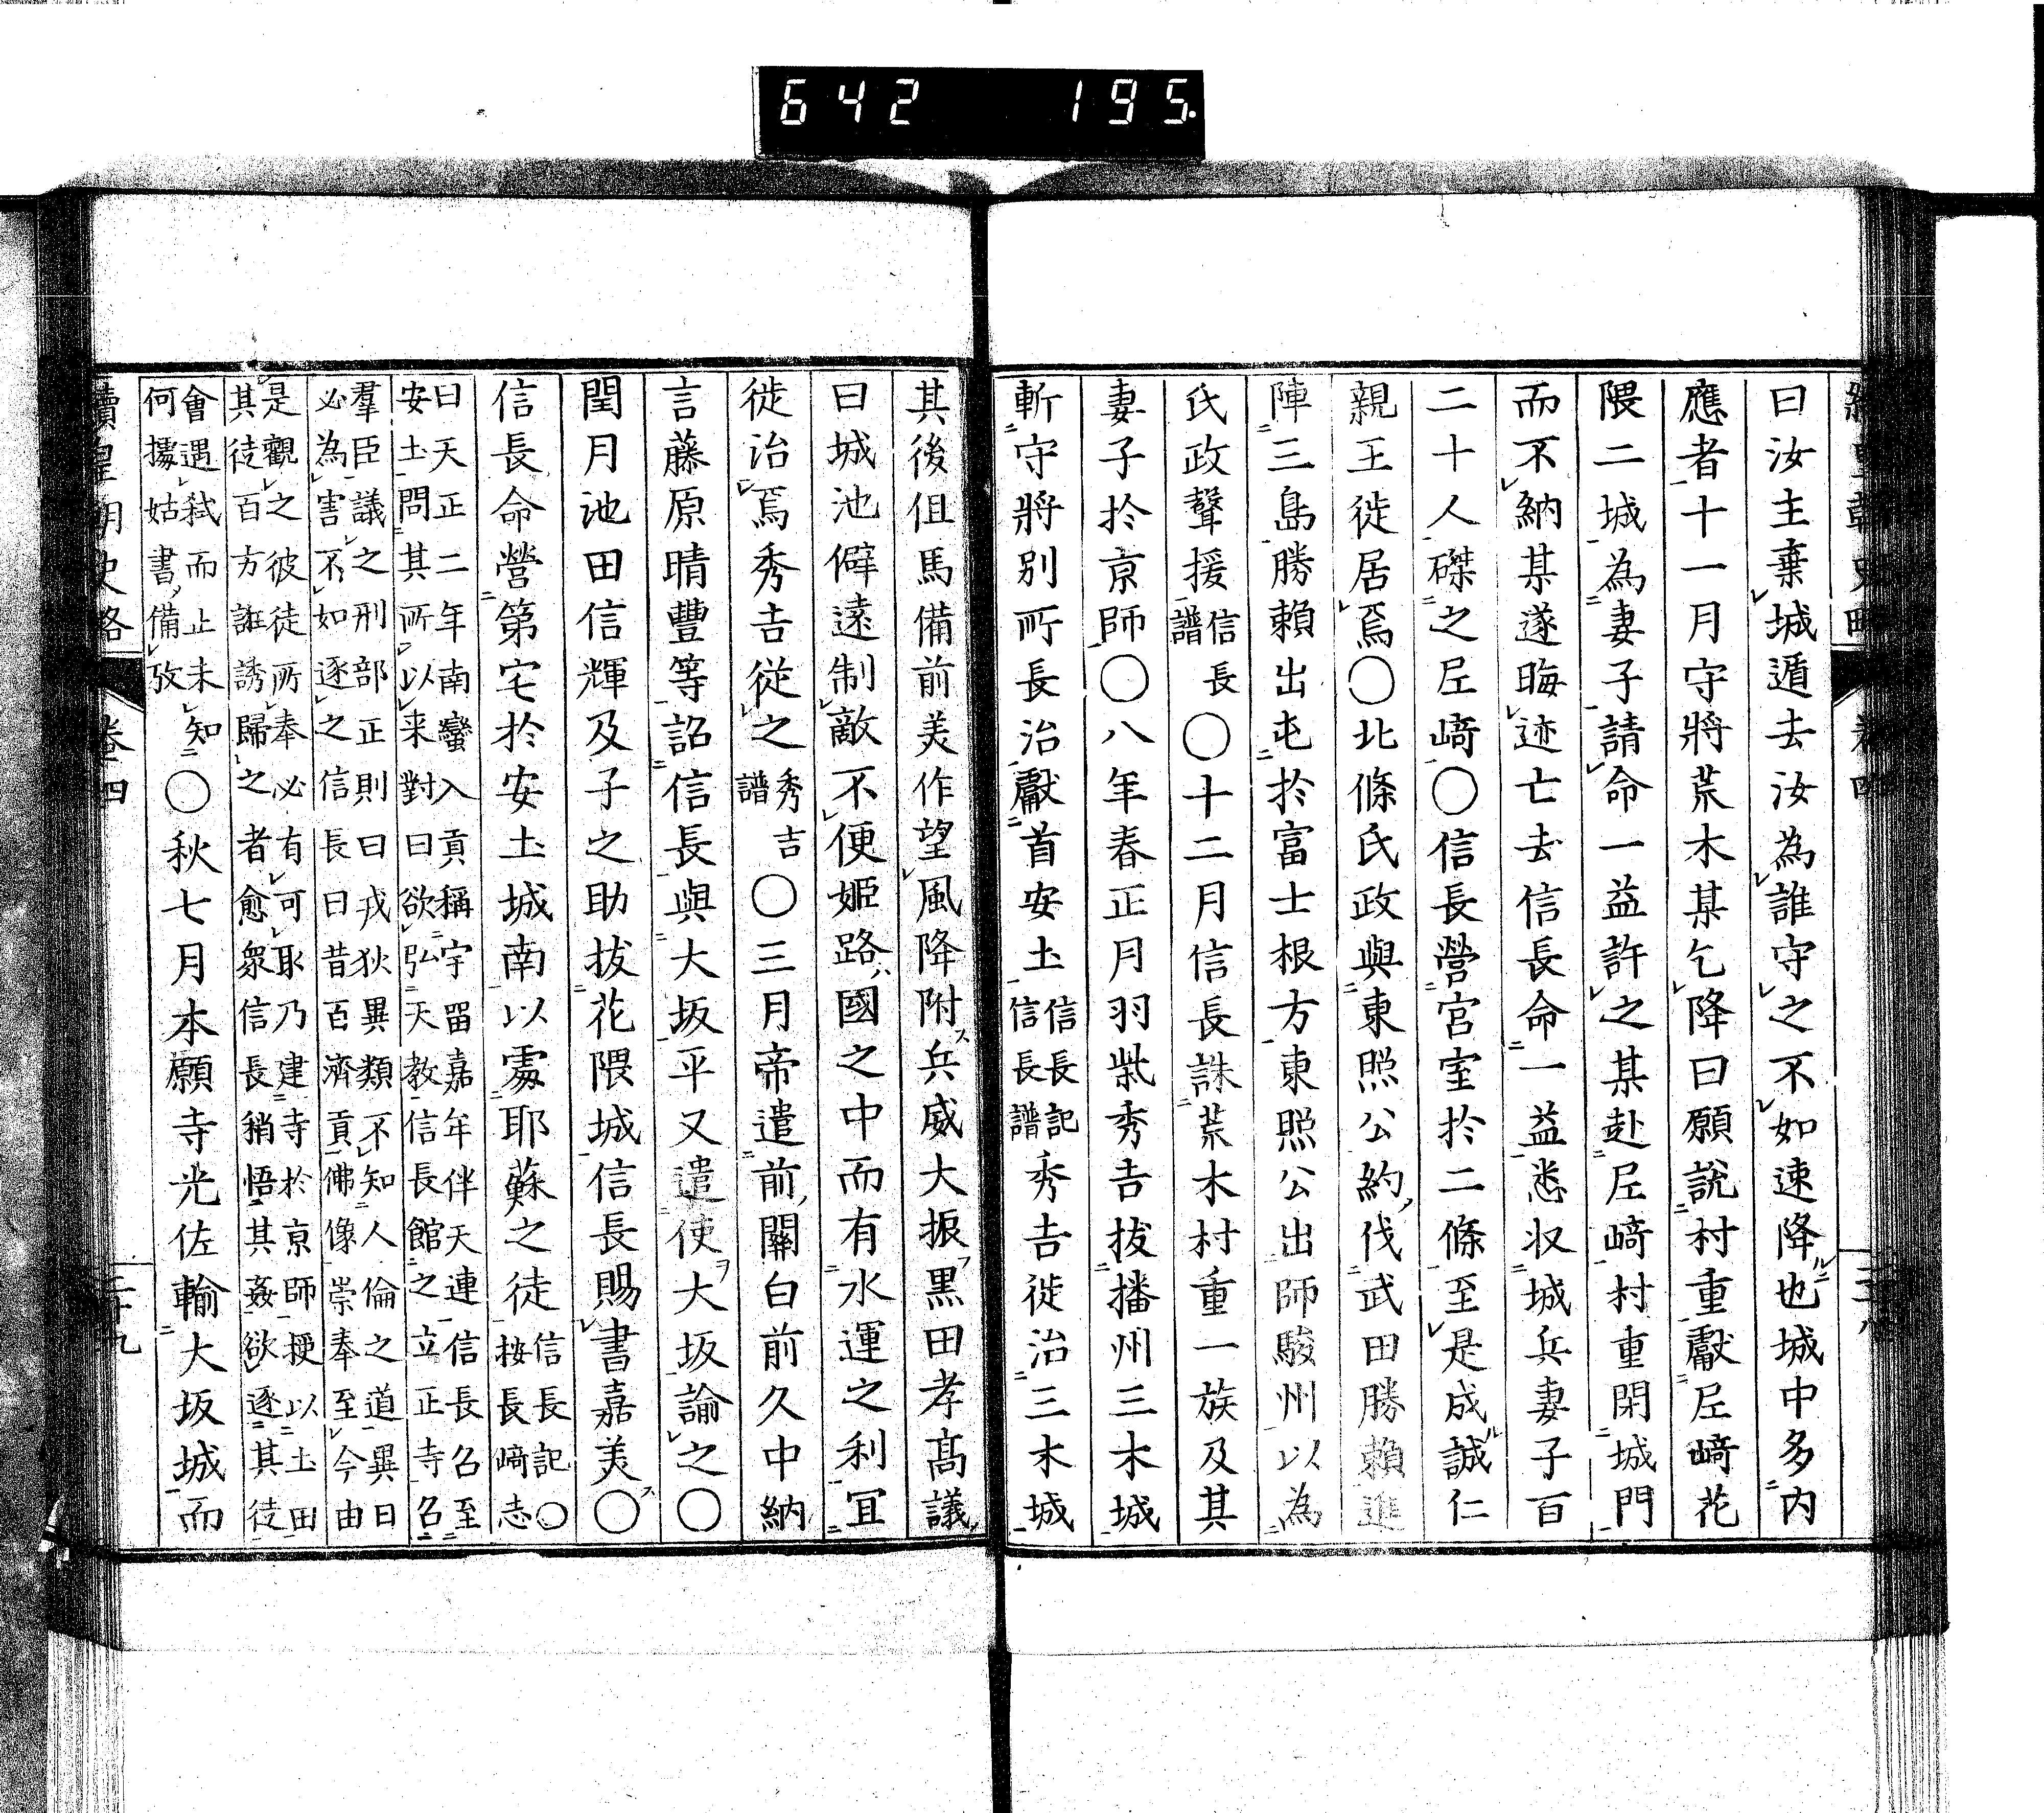 642 195.
曰汝主棄城遁去汝為誰守之不如速降也城中多內
應者十一月守將荒木某乞降曰願說村重獻尼﨑花
隈二城為妻子請命一益許之某赴尼﨑村重閉城門
而不納某遂晦迹亡去信長命一益悉收城兵妻子百
二十人磔之尼﨑○信長營宮室於二條至是成誠仁
親王徙居焉○北條氏政與東照公約伐武田勝賴進
陣三島勝賴出屯於富士根方東照公出師駿州以為
氏政聲援信長譜○十二月信長誅荒木村重一族及其
妻子於京師○八年春正月羽柴秀吉拔播州三木城
斬守將別所長治獻首安土信長記信長譜秀吉徙治三木城
其後但馬備前美作望風降附兵威大振黑田孝高議
曰城池僻遠制敵不便姬路國之中而有水運之利宜
徙治焉秀吉從之秀吉譜○三月帝遣前關白前久中納
言藤原晴豐等詔信長與大坂平又遣使大坂諭之○
閏月池田信輝及子之助拔花隈城信長賜書嘉美○
信長命營第宅於安土城南以處耶蘇之徒信長記○按長﨑志
曰天正二年南蠻入貢稱宇留嘉年伴天連信長召至
安土問其所以来對曰欲弘天教信長館之立正寺召
羣臣議之刑部正則曰戎狄異類不知人倫之道異日
必為害不如逐之信長曰昔百濟貢佛像崇奉至今由
是觀之彼徒所奉必有可取乃建寺於京師授以土田
其徒百方誑誘歸之者愈眾信長稍悟其姦欲逐其徒
會遇弒而止未知
何據姑書備攷○秋七月本願寺光佐輸大坂城而
續皇朝史略 卷四 二十九